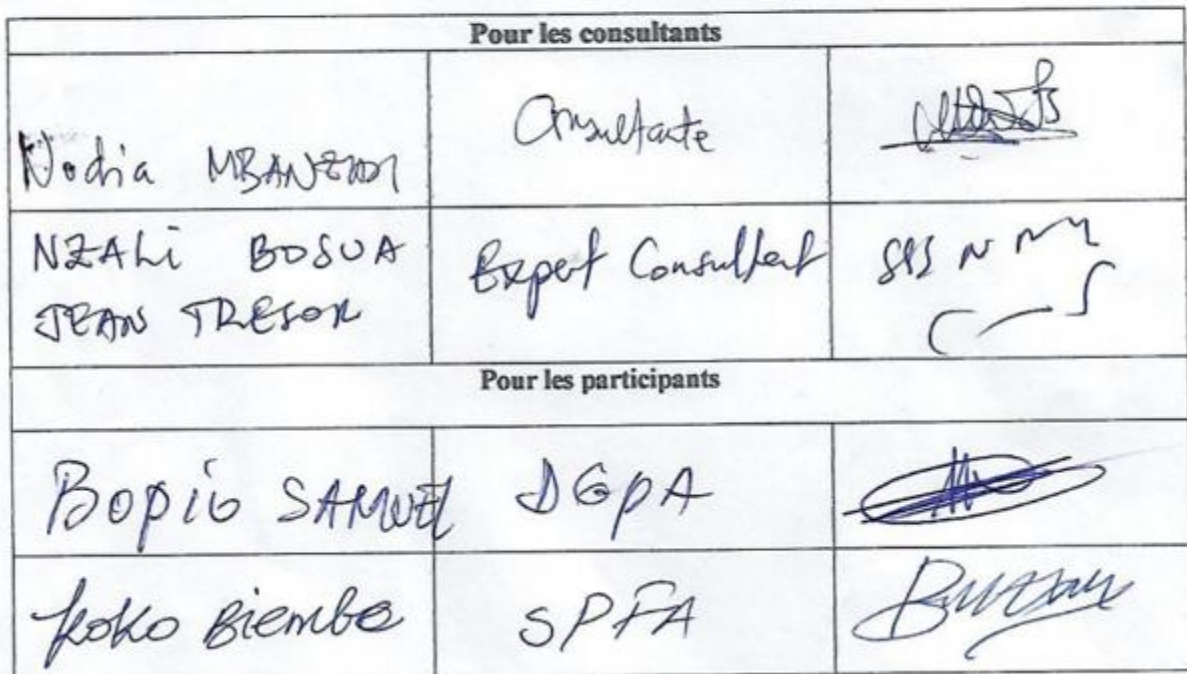 Pour les consultants
Nadia MBANZIDI Consultante
NZALI BOSUA Expert Consultant
JEAN TRESOR
Pour les participants
Bopio SAMUEL DGPA
Koko Biembe SPFA